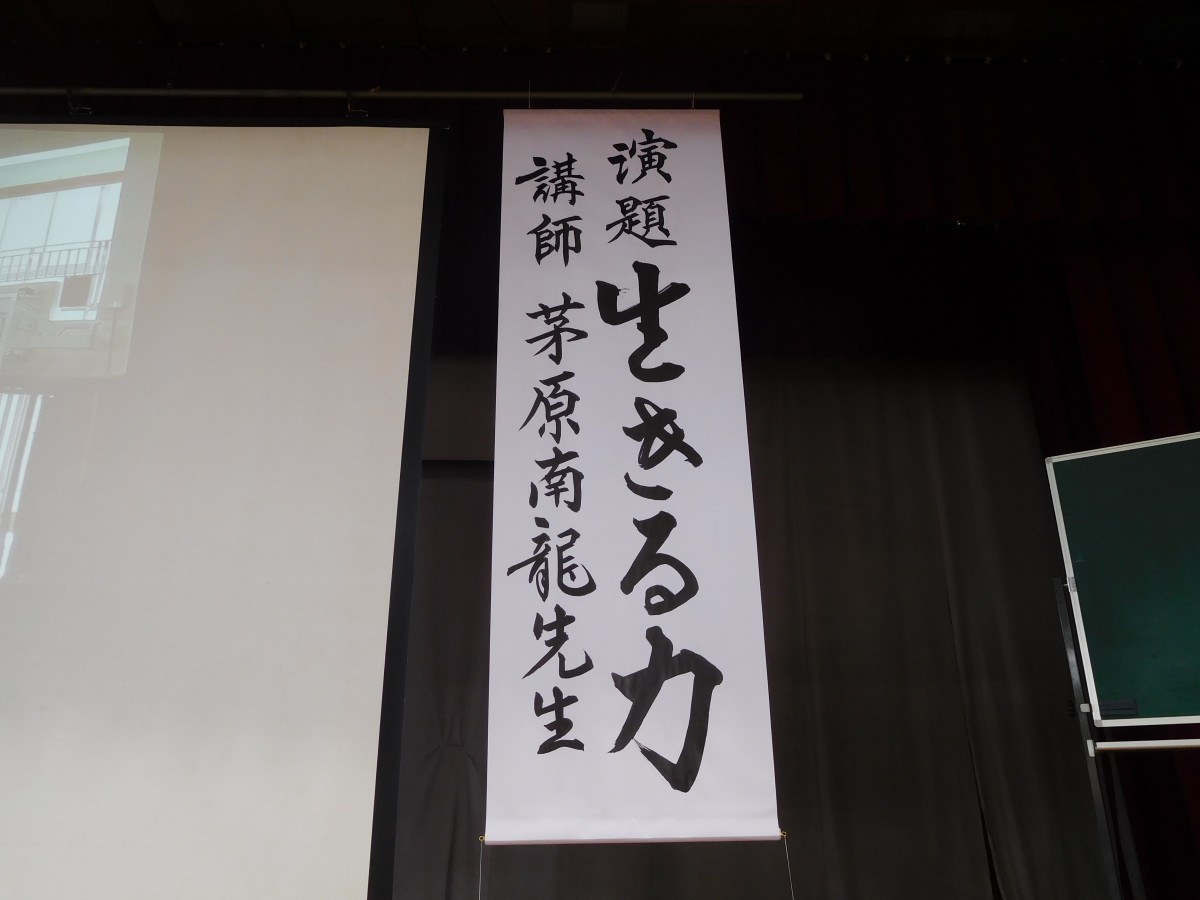 演題 生きる力
講師 茅原南龍先生